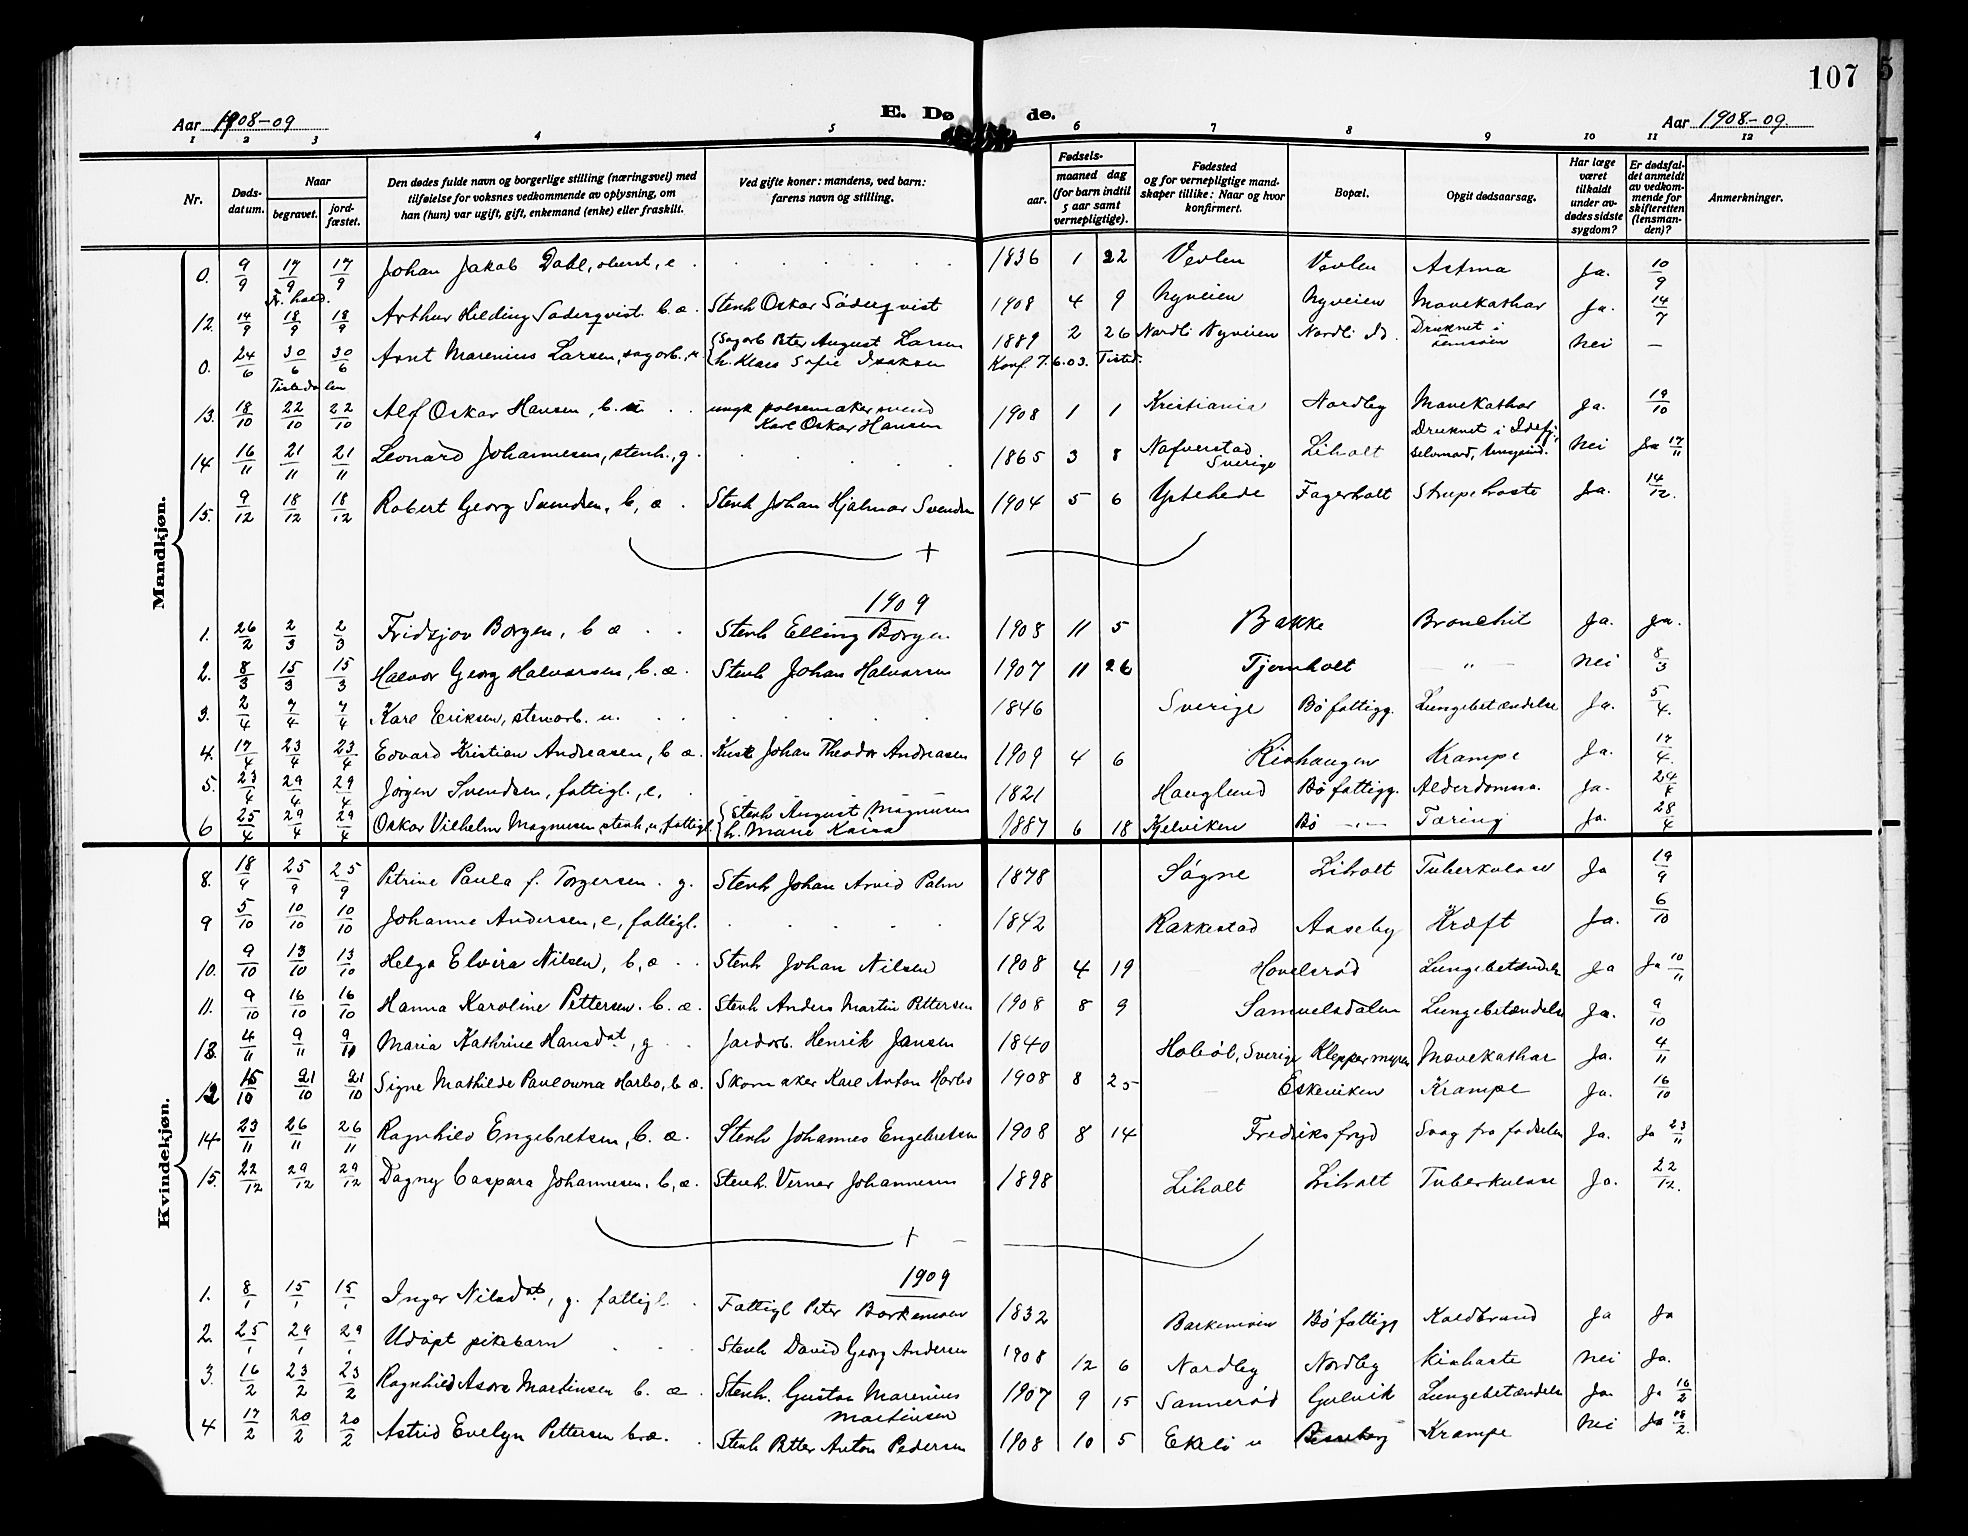 107
E. Døde.
Aar 1908-09
Aar 1908.-09.
1 2 3 4 5 6 7 8 9 10 11 12
Nr.
Døds-datum.
Naar
begravet.
jord-fæstet.
Den dødes fulde navn og borgerlige stilling (næringsvei) med tilføielse for voksnes vedkommende av oplysning, om han (hun) var ugift, gift, enkemand (enke) eller fraskilt.
Ved gifte koner: mandens, ved barn: farens navn og stilling.
Fødsels-
aar.
maaned dag
(for barn indtil 5 aar samt vernepligtige).
Fødested og for vernepligtige mandskaper tillike: Naar og hvor konfirmert.
Bopæl.
Opgit dødsaarsag.
Har læge været tilkaldt under avdødes sidste sygdom?
Er dødsfaldet anmeldt av vedkommende for skifteretten (lensmanden)?
Anmerkninger.
Mandkjøn.
0. 9/9 17/9 17/9 Johan Jakob Dahl, oberst, e. 1836 1 22 Vevlen Vevlen Astma Ja. 10/9
Fr. hald.
12. 14/9 18/9 18/9 Arthur Hilding Søderqvist b. æ. Stenh Oskar Søderqvist 1908 4 9 Nyveien Nyveien Mavekathar Ja. 14/7
0. 24/6 30/6 30/6 Arnt Marenius Larsen, sagarb., u. {Sagarb Peter August Larsen h. Klara Sofie Isaksen 1889 2 26 Nordli Nyveien Nordli Id. Druknet i Nei —
Konf. 7.6.03. Tisted.
Tistedalen
13. 18/10 22/10 22/10 Alf Oskar Hansen, b. u. ungk pølsemakersvend Karl Oskar Hansen 1908 1 1 Kristiania Nordby Mavekathar Ja. 19/10
14 16/11 21/11 21/11 Leonard Johannesen, stenh., g. 1865 3 8 Nafverstad Sverige Liholt Druknet i Idefj, selvmord, Nei Ja 17/11
15. 9/12 18/12 18/12 Robert Georg Svendsen, b, æ. Stenh Johan Hjalmar Svendsen 1904 5 6 Ystehede Fagerholt Strupehoste Ja. 14/12.
1909
1. 26/2 2/3 2/3 Fridtjov Borgen, b æ. Stenh Elling Borgen 1908 11 5 Bakke Bronchit Ja. Ja.
2. 8/3 15/3 15/3 Halvor Georg Halvorsen, b. æ. Stenh Johan Halvorsen 1907 11 26 Tjernholt — " — Nei 8/3
3. 2/4 7/4 7/4 Karl Eriksen, stenarb. u. 1846 Sverige Bø fattigg. Lungebetændelse Ja. 5/4.
4. 17/4 23/4 23/4 Edvard Kristian Andreasen, b æ. Kusk Johan Theodor Andreasen 1909 4 6 Rishaugen Krampe Ja. 17/4.
5. 23/4 29/4 29/4 Jørgen Svendsen, fattigl., e. 1821 Hauglund Bø fattigg. Alderdomssv. Ja. 24/4
6 25/4 29/4 29/4 Oskar Vilhelm Magnusen, stenh, u, fattigl. {Stenh August Magnusen h. Marie Kaisa 1887 6 18 Kjelviken Bø — " — Tæring Ja. 28/4
Kvindekjøn.
8. 18/9 25/9 25/9 Petrine Paula f. Torgersen. g. Stenh Johan Arvid Palm 1878 Søgne Liholt Tuberkulose Ja 19/9
9 5/10 10/10 10/10 Johanne Andersen, e, fattigl. 1842 Rakkestad Aaseby Kræft Ja. 6/10
10. 9/10 13/10 13/10 Helga Elvira Nilsen, b, æ. Stenh Johan Nilsen 1908 4 19 Hovelsrød Lungebetændelse Ja Ja 10/11
11. 9/10 16/10 16/10 Hanna Karoline Pettersen. b. æ. Stenh Anders Martin Pettersen 1908 8 9 Samuelsdalen Lungebetændelse Ja. 9/10
13. 4/11 9/11 9/11 Maria Kathrine Hansdat, g Jordarb. Henrik Jansen 1840 Holøbl, Sverige Kleppermyren Mavekathar Ja. 4/11
12 15/10 21/10 21/10 Signe Mathilde Paulowna Harbo, b æ. Skomaker Karl Anton Harbo 1908 8 25 Eskeviken Krampe Ja. 16/10
14 23/11 26/11 26/11 Ragnhild Engebretsen, b. æ. Stenh Johannes Engebretsen 1908 8 14 Fredriksfryd Svag fra fødselen Ja. Ja 23/11
15. 22/12 29/12 29/12 Dagny Caspara Johannesen, b, æ. Stenh. Verner Johannesen 1898 Liholt Liholt Tuberkulose Ja. 22/12.
1909
1. 8/1 15/1 15/1 Inger Nilsdat, g. fattigl. Fattigl Peter Barkemoen 1832 Barkemoen Bø fattigg Koldbrand Ja Ja
2. 25/1 29/1 29/1 Udøpt pikebarn Stenh David Georg Andersen 1908 12 6 Nordby Nordby Kighoste Nei Ja.
3. 16/2 23/2 23/2 Ragnhild Asora Martinsen b. æ. Stenh. Gustav Marenius Martinsen 1907 9 15 Sannerød Gulvik Lungebetændelse Ja. Ja 16/2
4 17/2 20/2 20/2 Astrid Evelyn Pettersen b. æ. Stenh Petter Anton Pedersen 1908 10 5 Ekeli u Krampe Nei Ja 18/2.